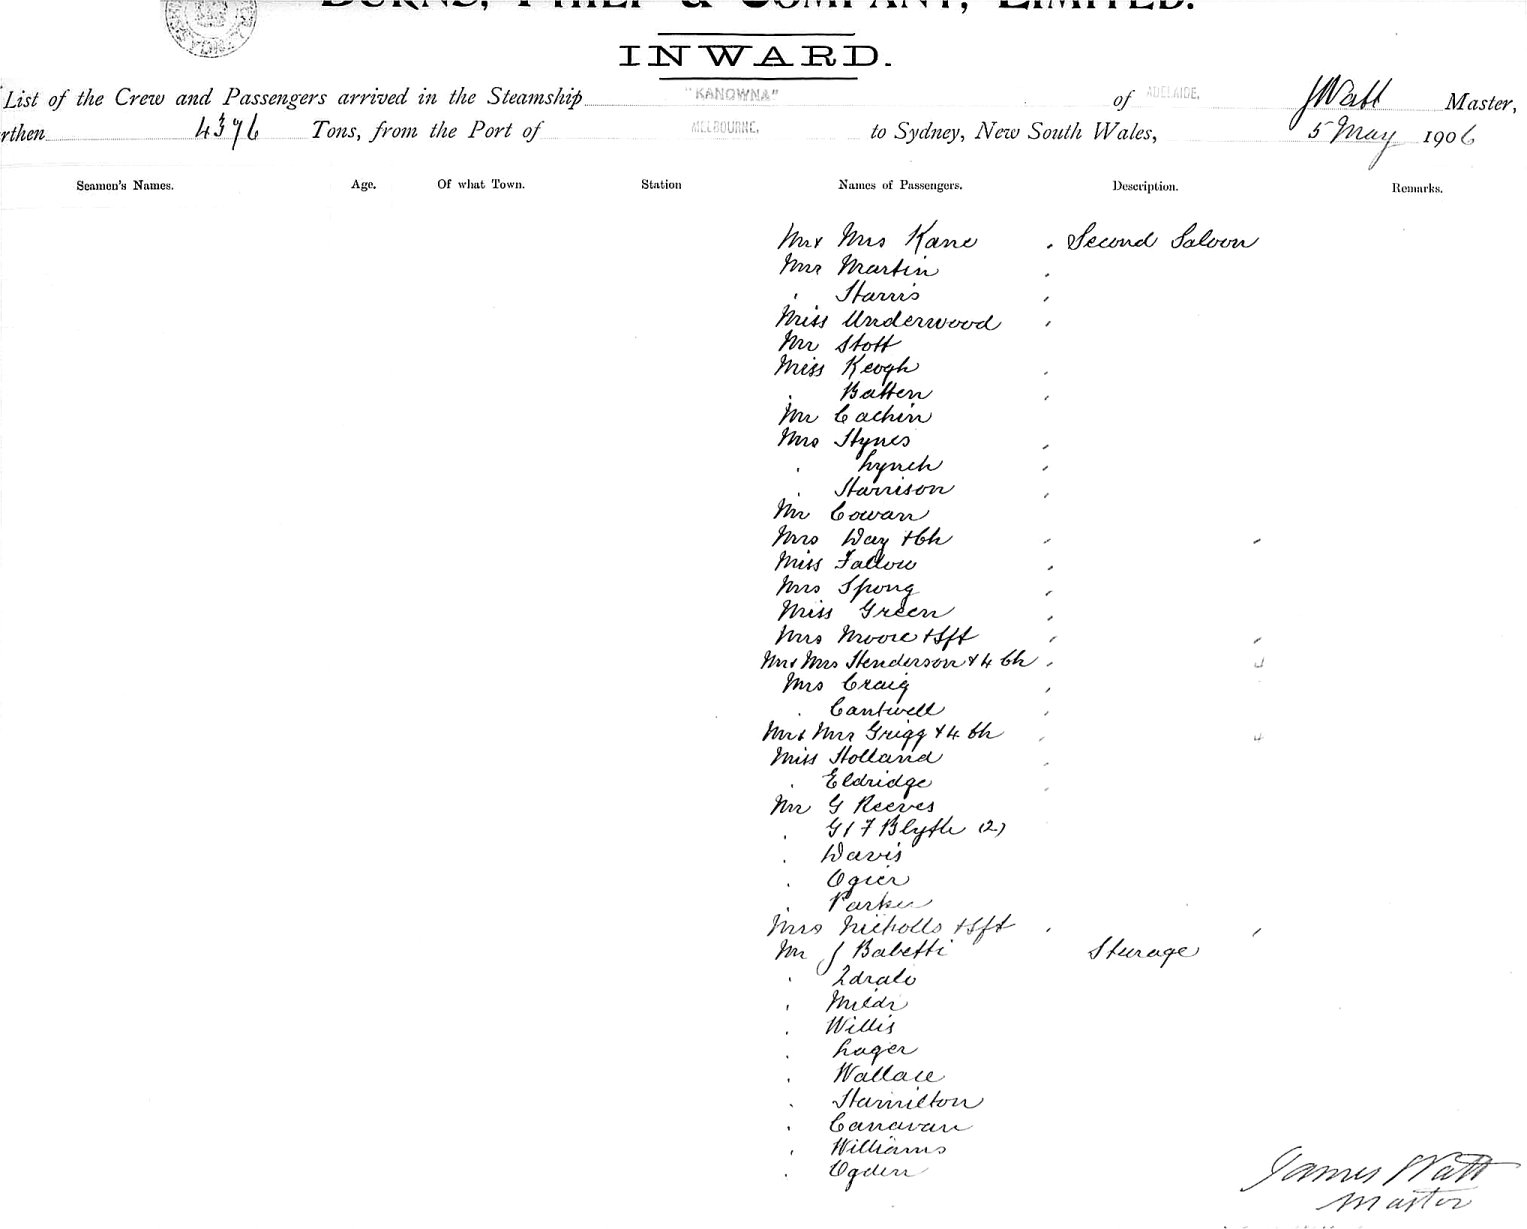 BURNS, PHILP & COMPANY, LIMITED.
INWARD.
List of the Crew and Passengers arrived in the Steamship "KANOWNA" of ADELAIDE, J Watt Master,
rthen 4376 Tons, from the Port of MELBOURNE, to Sydney, New South Wales, 5 May 1906
Seamen's Names. Age. Of what Town. Station Names of Passengers. Description. Remarks.
Mr & Mrs Kane Second Saloon
Mrs Martin
" Harris
Miss Underwood
Mr Stott
Miss Keogh
" Batten
Mr Cachin
Mrs Hynes
" Lynch
" Harrison
Mr Cowan
Mrs Day & Ch
Miss Fallow
Mrs Spong
Miss Green
Mrs Moore & Ift
Mr & Mrs Henderson & 4 Ch 4
Mrs Craig
" Cantwell
Mr & Mrs Grigg & 4 Ch 4
Miss Holland
" Eldridge
Mr G Reeves
" G & F Blyth (2)
" Davis
" Ogier
" Parker
Mrs Nicholls & Ift
Mr J Babetti Sturage
" Willis
" Lager
" Wallace
" Hamilton
" Canavan
" Williams
" Ogden
James Watt
Master